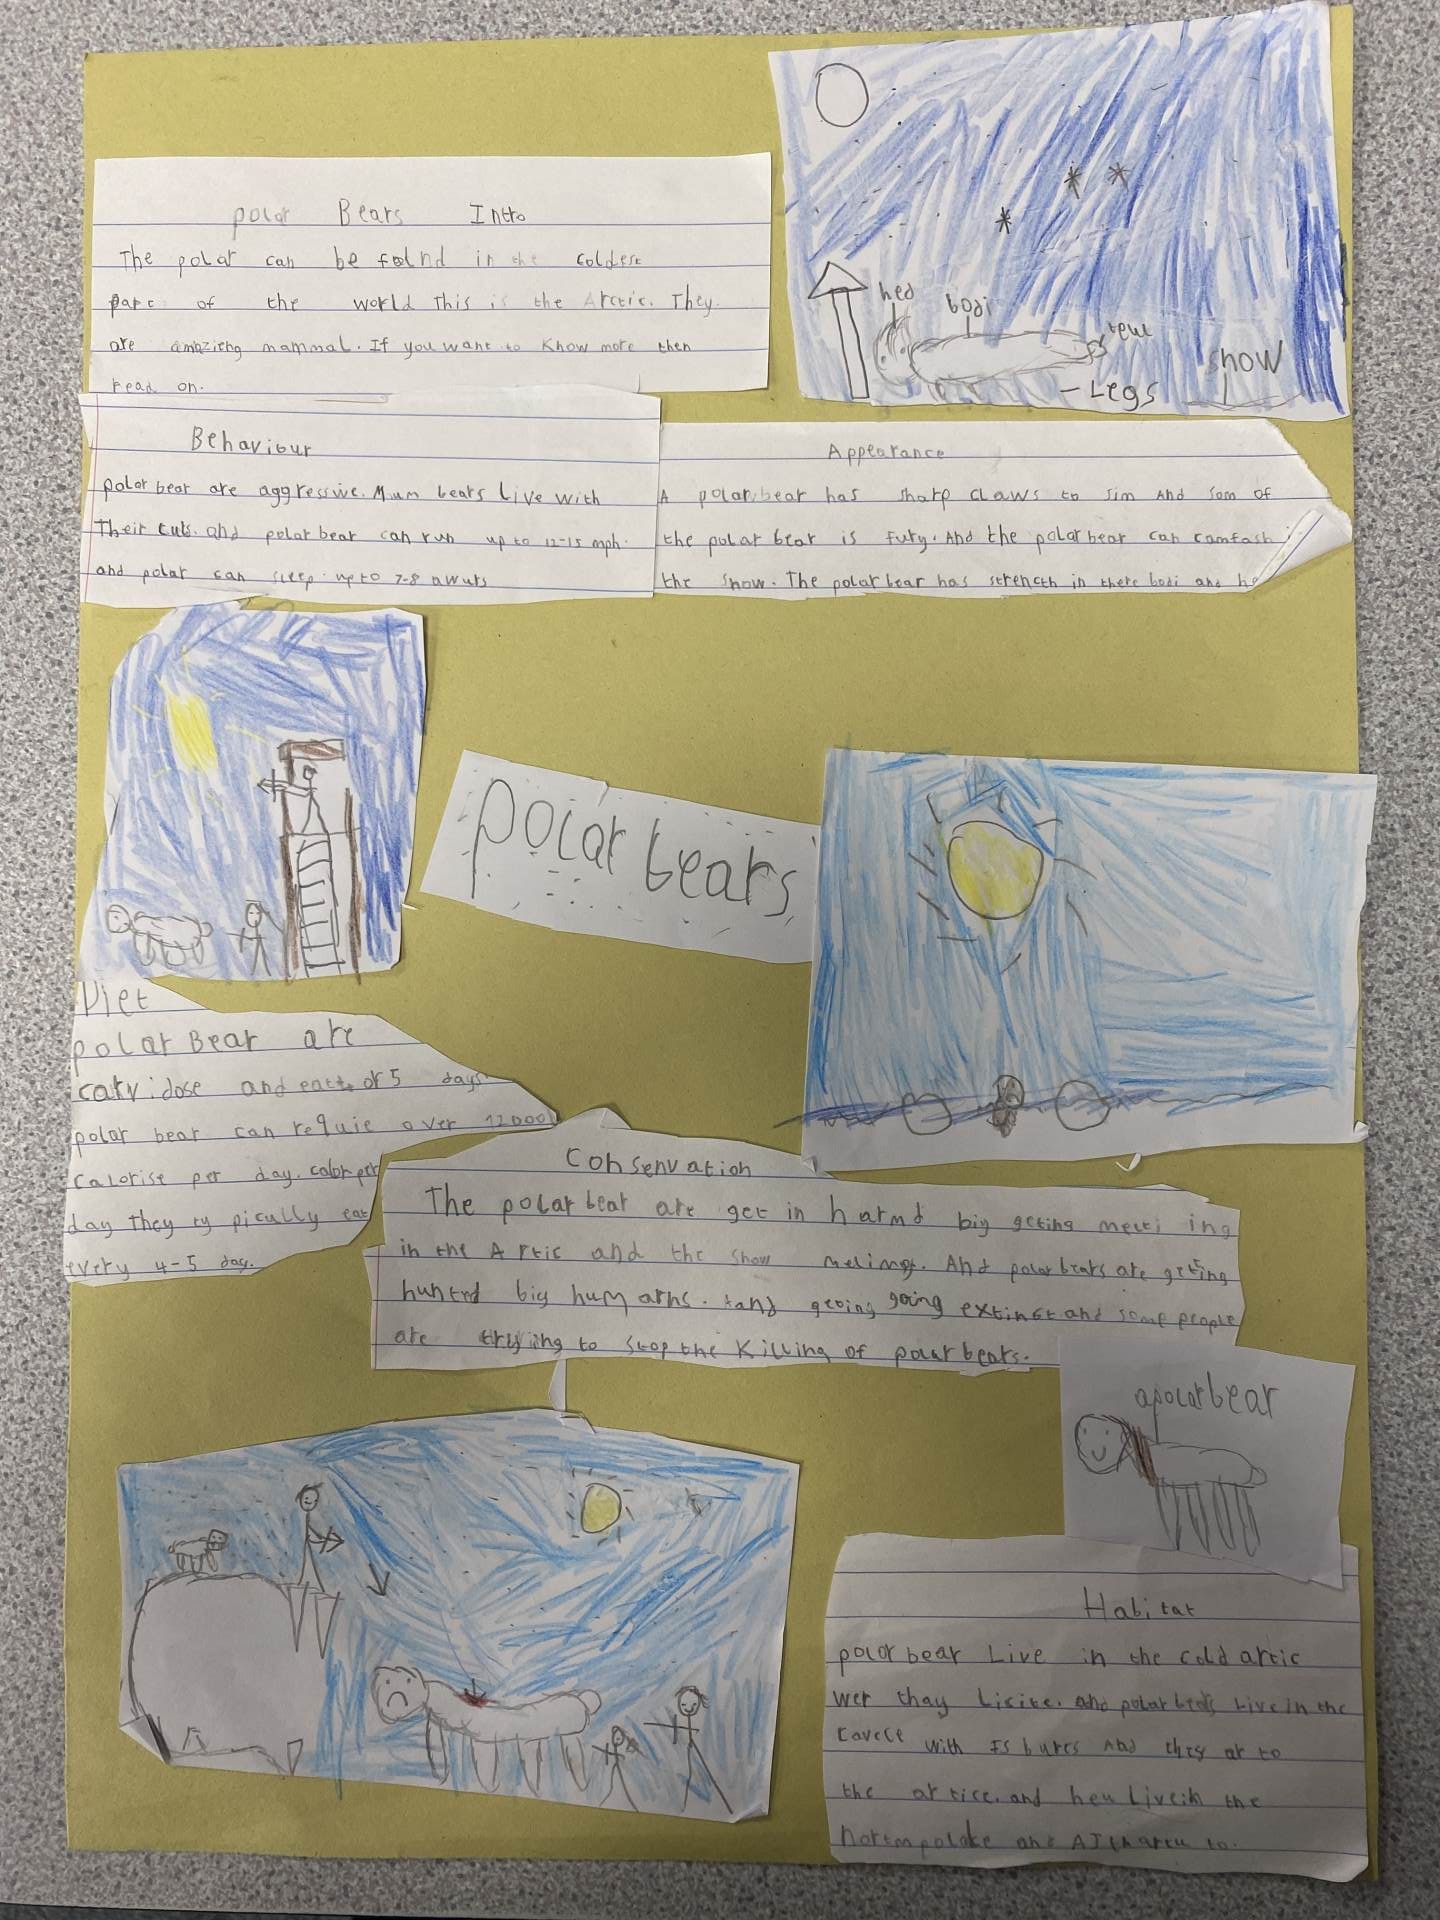 polar Bears Intro
The polar can be folnd in the coldest
part of the world This is the Arctic. They
are amazieng mammal. If you want to know more then
read on.
hed
bodi
teul
snow
- Legs
Behaviour
polar bear are aggressive. Mum bears live with
Their cubs. and polar bear can run up to 12-15 mph.
and polar can sleep up to 7-8 awurs
Appearance
A polar bear has sharp claws to sim and som of
the polar bear is fury. And the polar bear can camfash
the snow. The polar bear has strength in there bodi and he
polar bears
Diet
polar Bear are
carv idose and eat or 5 days
polar bear can requie over 12000
calorise per day. calor per
day They ty pically eat
every 4-5 day.
Conservation
The polar bear are get in harmd big geting melti ing
in the Artic and the snow meling. And polar bears are getting
hunted big hum arns. and geoing going extinst and some people
are tryiing to stop the killing of polar bears.
a polar bear
Habitat
polar bear Live in the cold artic
wer thay Lisite. and polar bears Live in the
cavece with Is burcs And they ar to
the artice. and heu Live in the
nortnpolake and